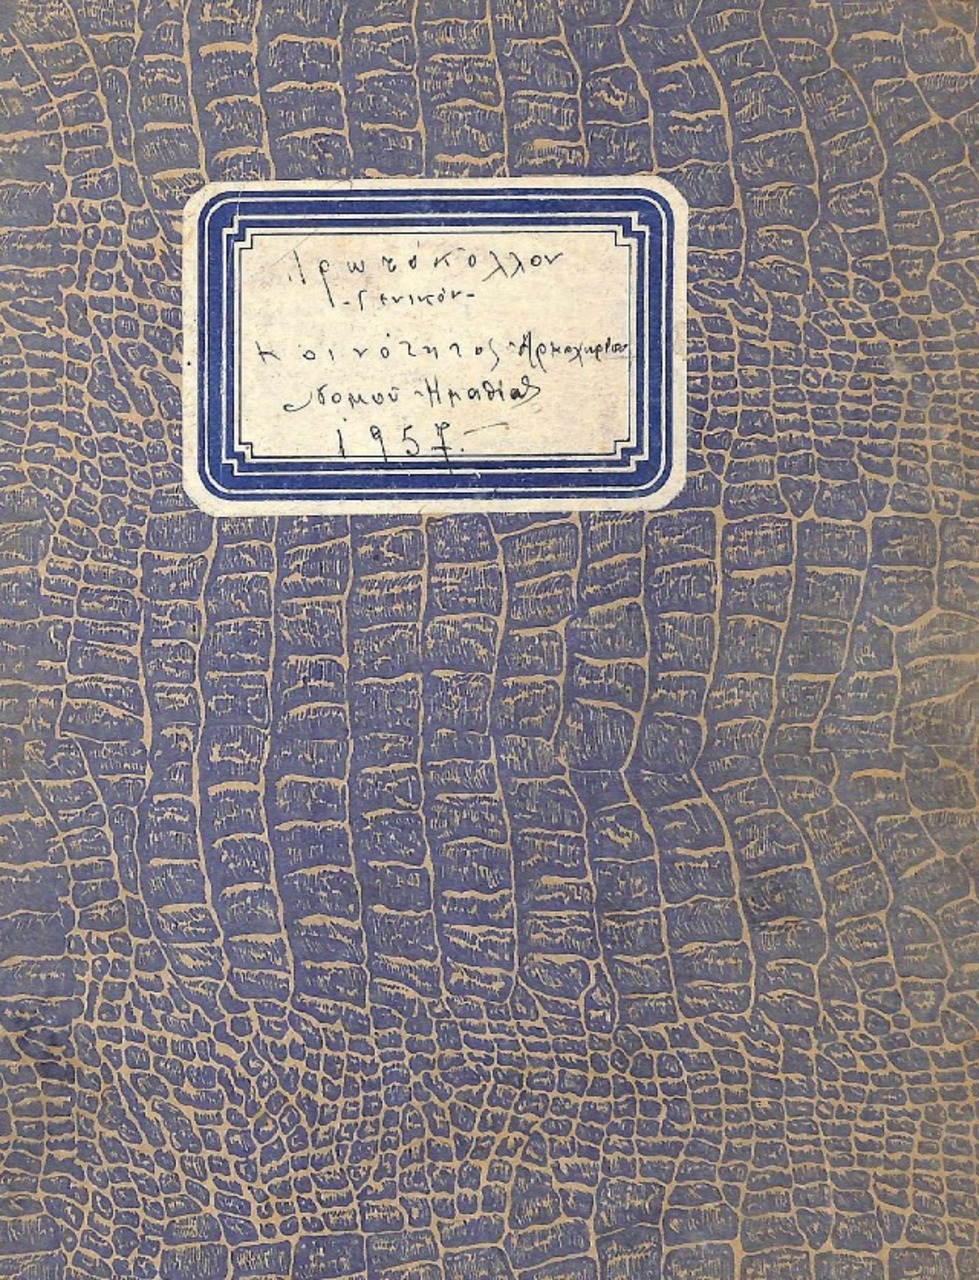 Πρωτόκολλον
-Γενικόν-
Κοινότητος Αρκοχωρίου
Νομού Ημαθίας
1957.—